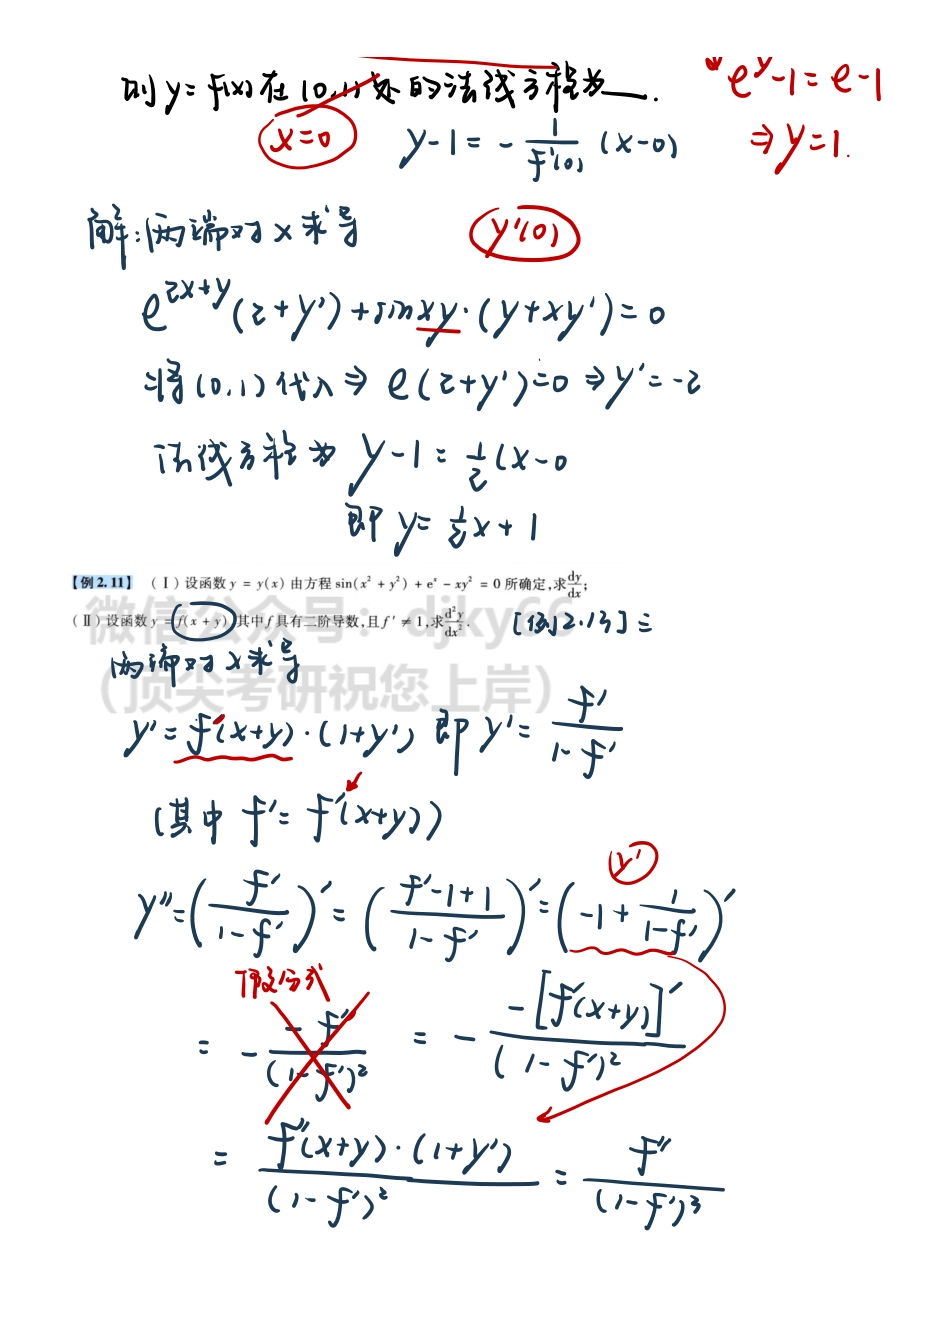 则 y=f(x) 在 (0,1) 处的法线方程为___.
e^y-1=e-1
x=0
y-1=-\frac{1}{f'(0)}(x-0)
⇒y=1.
解:两端对x求导
y'(0)
e^{2x+y}(2+y')+sinxy·(y+xy')=0
将(0,1)代入⇒e(2+y')=0⇒y'=-2
法线方程为 y-1=\frac{1}{2}(x-0
即 y=\frac{1}{2}x+1
【例2.11】 (Ⅰ)设函数 y = y(x) 由方程 sin(x² + y²) + e^x - xy² = 0 所确定,求\frac{dy}{dx};
(Ⅱ)设函数 y = f(x + y),其中 f 具有二阶导数,且 f' ≠ 1,求\frac{d²y}{dx²}.
[例2.13]三
微信公众号: djky66
(顶尖考研祝您上岸)
两端对x求导
y'=f'(x+y)·(1+y') 即 y'=\frac{f'}{1-f'}
(其中 f'=f'(x+y))
y'
y''=(\frac{f'}{1-f'})'=(\frac{f'-1+1}{1-f'})'=(-1+\frac{1}{1-f'})'
=-\frac{-f''}{(1-f')²} =-\frac{-[f'(x+y)]'}{(1-f')²}
=\frac{f''(x+y)·(1+y')}{(1-f')²}=\frac{f''}{(1-f')³}